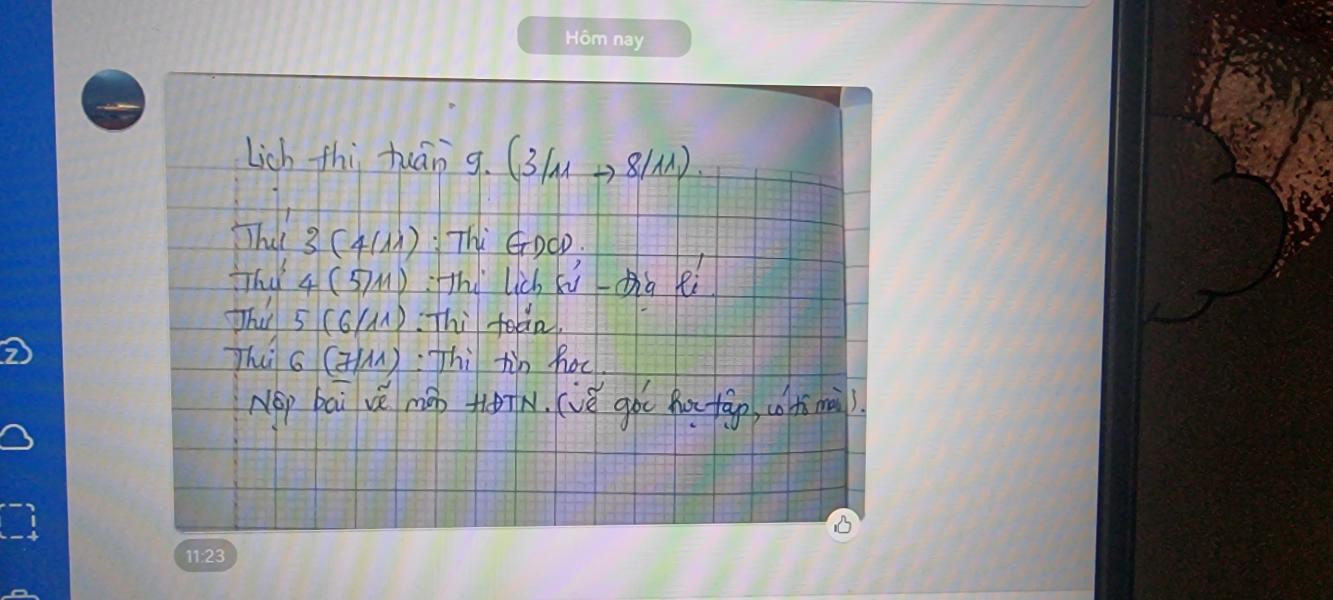 Hôm nay
Lịch thi tuần 9. (3/11 → 8/11).
Thứ 3 (4/11) : Thi GDCD.
Thứ 4 (5/11) : Thi lịch sử - địa lí.
Thứ 5 (6/11) : Thi toán.
Thứ 6 (7/11) : Thi tin học.
Nộp bài vẽ môn HĐTN. (vẽ góc học tập, có tô màu).
11:23